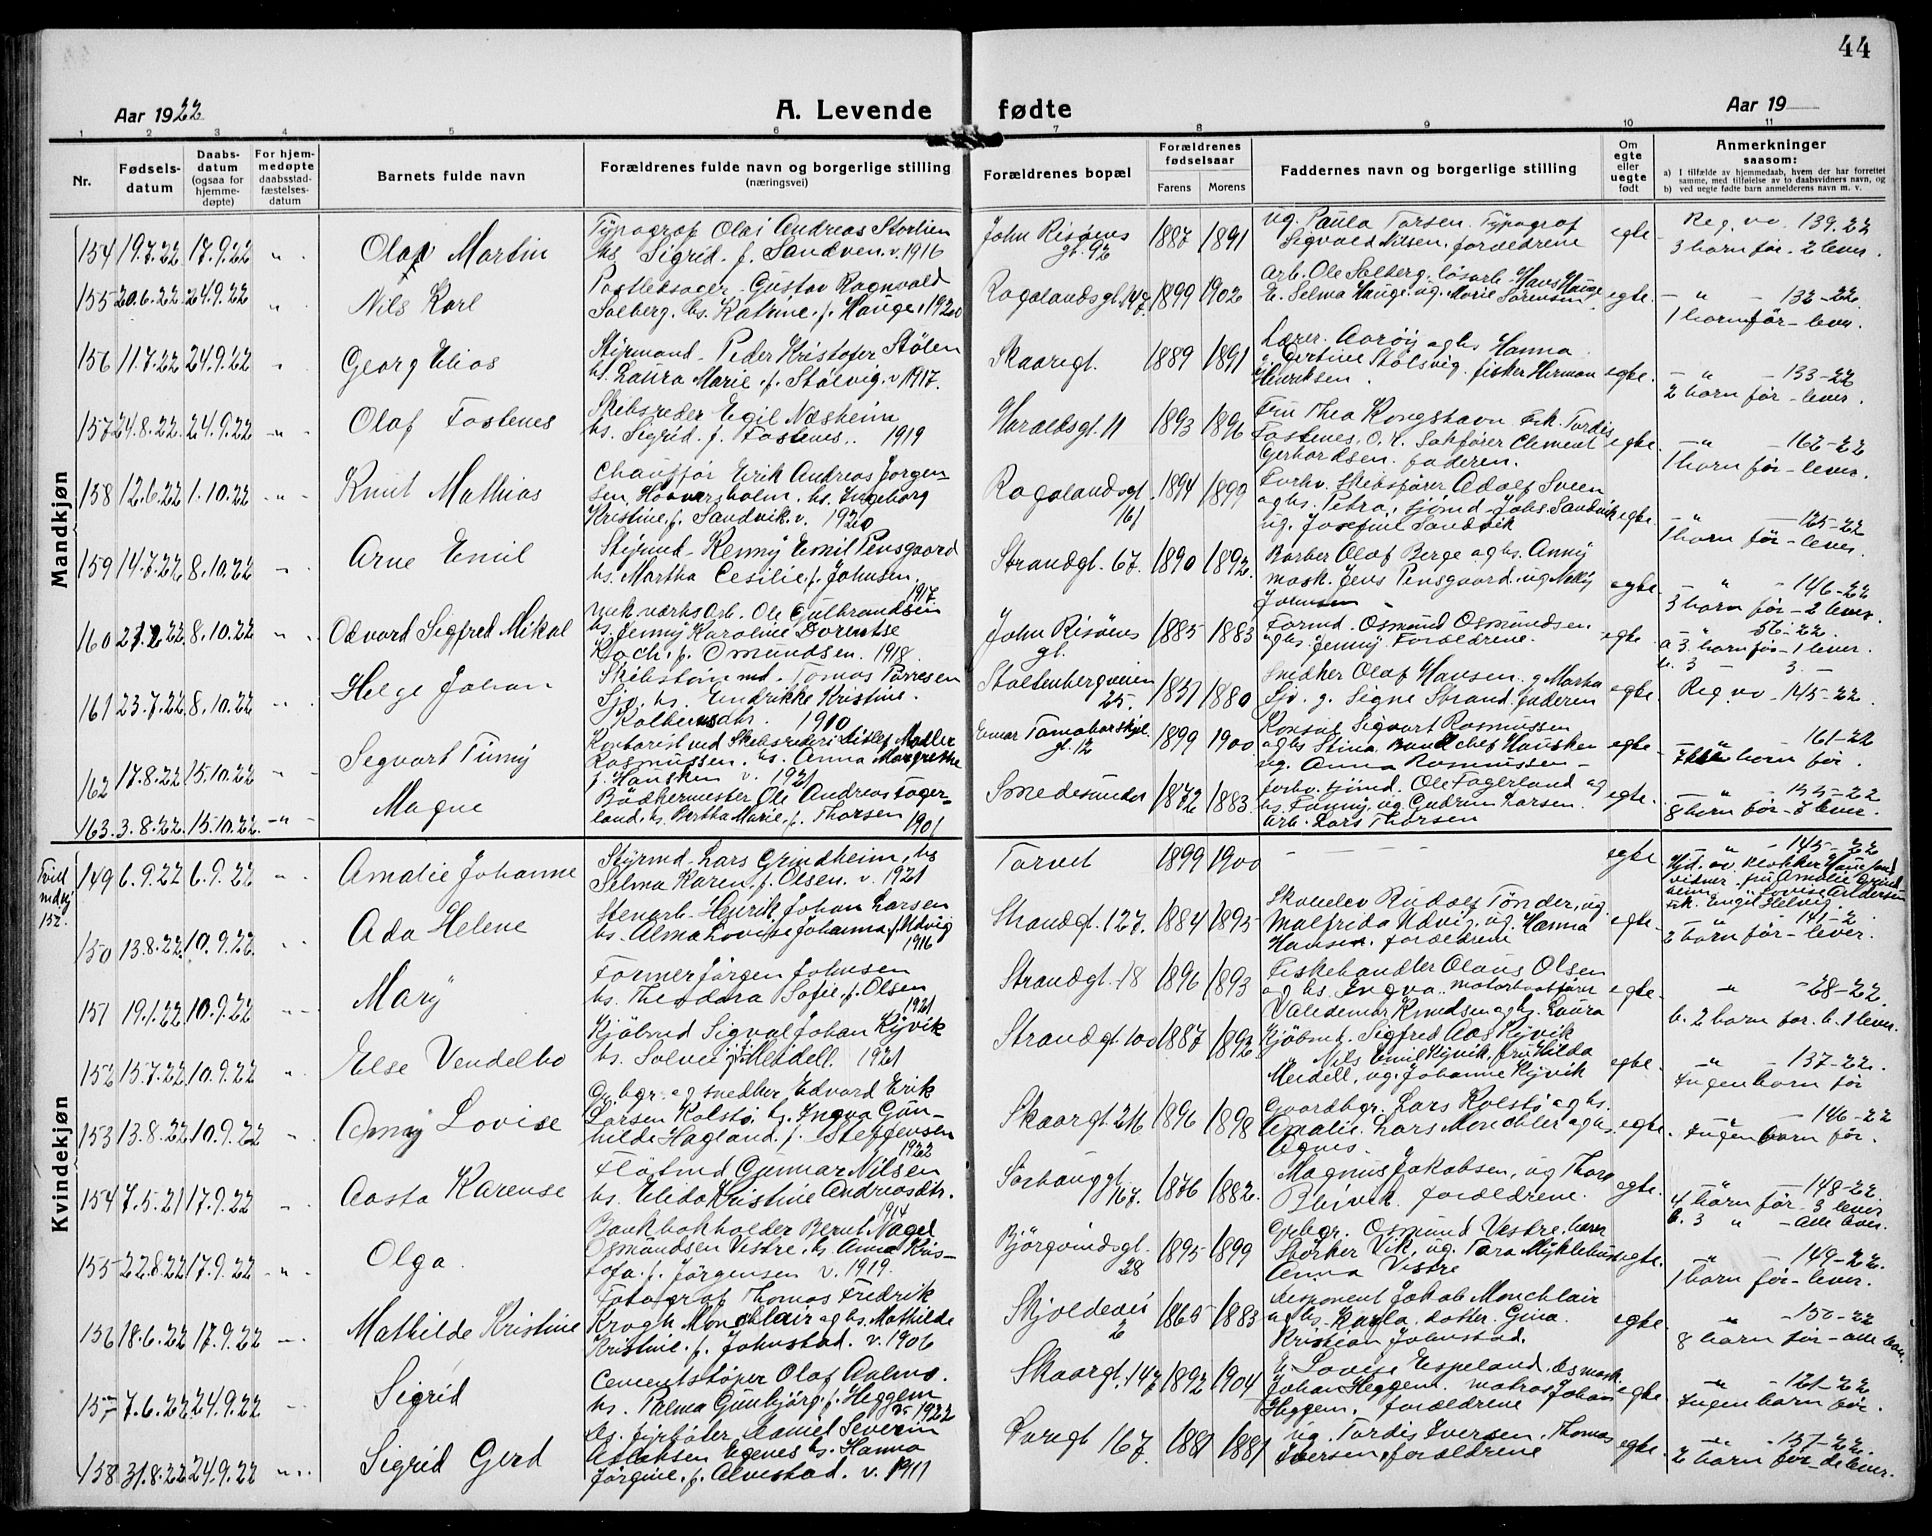 44
Aar 1922
A. Levende fødte
Aar 19
1 2 3 4 5 6 7 8 9 10 11
Nr.
Fødsels-datum
Daabs-datum (ogsaa for hjemme-døpte)
For hjem-medøpte daabsstad-fæstelses-datum
Barnets fulde navn
Forældrenes fulde navn og borgerlige stilling (næringsvei)
Forældrenes bopæl
Forældrenes fødselsaar
Farens
Morens
Faddernes navn og borgerlige stilling
Om egte eller uegte født
Anmerkninger saasom:
a) I tilfælde av hjemmedaab, hvem der har forrettet samme, med tilføielse av to daabsvidners navn, og
b) ved uegte fødte barn anmelderens navn m. v.
Mandkjøn
154 19.7.22 17.9.22 " Olaf Martin
Typograf Olai Andreas Storlien
hs Sigrid f. Sandven v. 1916
John Risøens gt. 92 1887 1891
ug. Paula Torsen. Typograf
Sigvald Nilsen, forældrene
egte
Reg. no 139-22
3 barn før - 2 lever.
155 20.6.22 24.9.22 " Nils Karl
Gustav Ragnvald
Solberg. hs. Katrine f. Hauge, 1920
Rogalandsgt. 147 1899 1902
Arb. Ole Solberg, løsarb. Hans Hauge
E. Selma Hauge, ug. Marie Sørensen
egte
- " - 132-22
1 barn før - lever.
156 11.7.22 24.9.22 " Georg Elias
Styrmand Peder Kristofer Stølen
hs. Laura Marie f. Stølvig. v 1917.
Skaargt. 1889 1891
Lærer Aarøy og hs Hanna
Gertine Stølsvig, fisker Herman
Henriksen.
egte.
- " - 133-22
2 barn før - lever.
157 24.8.22 24.9.22 " Olaf Fostenes
Skibsreder Egil Næsheim
hs. Sigrid f. Fostenes. 1919
Haraldsgt. 11 1893 1896
Fru Thea Kongshavn Frk. Tordis
Fostenes, O.r. Sakfører Clement
Gerhardsen. faderen.
egte.
- " - 162-22
1 barn før - lever.
158 12.6.22 1.10.22 " Knut Mathias
Chauffør Erik Andreas Jørgen-
sen Haaversholm. hs. Ingeborg
Kristine f. Sandvik v. 1920
Rogalandsgt. 161 1894 1899
Forhv. Skibsfører Adolf Sveen
og hs. Petra, sjømd Johs. Sandvik
ug. Josefine Sandvik
egte.
- " - 125-22
1 barn før - lever.
159 14.7.22 8.10.22 " Arne Emil
Styrmd. Kenny Emil Pensgaard
hs. Martha Cesilie f. Johnsen.
1917
Strandgt. 67. 1890 1892.
Barber Olaf Berge og hs. Anny
mask. Jens Pensgaard, ug Nelly
Johnsen
egte.
- " - 146-22
3 barn før - 2 lever.
160 8.10.22 " Odvard Sigfred Mikal
Mek. værks arb. Ole Gulbrandsen
hs. Jenny Karoline Dorentse
Koch, f. Omundsen. 1918.
John Risøens gt. 1885 1883
Formd. Osmund Osmundsen
og hs. Jenny. Forældrene.
egte.
- " 56-22.
a 3 barn før - 1 lever.
b. 3 - 3. -
161 23.7.22 8.10.22 " Helge Johan
Skibstømmd. Tomas Torresen
Sjø. hs. Endrikke Kristine
Kolbensdtr. 1910
Stoltenbergveien 25. 1880
Snedker Olaf Hansen. g. Marta
Sjø. g. Signe Strand, faderen
egte.
Reg. no - 145-22
162 17.8.22 15.10.22 " Segvart Timmy
Kontorist ved Skibsrederi Ditlef Møller
Rasmussen. hs. Anna Margrethe
f. Hausken v. 1921
1899 1900
Konsul Sigvart Rasmussen
og hs Stina Hausken
ug. Anna Rasmussen
egte
- " - 161-22
barn før.
163 3.8.22 15.10.22 - " - Magne
Bødkermester Ole Andreas Fager-
land. hs. Bertha Marie f. Thorsen
1901
Smedesundet 1872 1883
forhv. sjømd. Ole Fagerland og
hs. Fanny, ug Gudrun Larsen.
Arb. Lars Thorsen
egte.
- " - 155-22
8 barn før - 7 lever.
Kvindekjøn
Tvill
152.
149 6.9.22 6.9.22 " Amalie Johanne
Styrmd. Lars Grindheim, hs
Selma Karen f. Olsen. v. 1921
Torvet 1899 1900
egte
- " - 145-22
Hjd. av klokker
vidner. fru Amalie Grind-
heim
frk. Engel Helvig
150 13.8.22 10.9.22 " Ada Helene
Stenarb. Henrik Johan Larsen
hs. Alma Lovise Johanna f. Udvig
1916
Strandgt. 127. 1884 1895
Skomker Rudolf Tønder, ug.
Malfrida Udvig, ug. Hanna
Hansen, forældrene
egte.
- " - 141-2
2 barn før - lever.
151 19.1.22 10.9.22 " Mary
Former Jørgen Johnsen
hs. Theodora Sofie f. Olsen
1921
Strandgt. 18 1896 1893
Fiskehandler Olaus Olsen
og hs. Ingva. motorbaatfører
Valdemar Knudsen og hs. Laura
egte.
" - 28-22.
b. 2 barn før. b. 1 lever.
152 15.7.22 10.9.22 " Else Vendelbo
Kjøbmd Sigval Johan Kyvik
hs. Solvei f. Meidell. 1921
Strandgt. 100 1887 1892
Kjøbmd. Sigfred Aas Kyvik
Nils Emil Kyvik, fru Hilda
Meidell, ug. Johanne Kyvik
egte.
" - 137-22.
Ingen barn før
153 13.8.22 10.9.22 " Anny Lovise
Gbgr. og snedker Edvard Erik
Larsen Kolstø, hs. Ingva Gun-
hilde Hagland f. Steffensen
1922
Skaargt. 216 1896 1898
Gaardbgr. Lars Kolstø og hs.
Amalie. Lars Monchler og hs.
Agnes.
egte.
" - 146-22
Ingen barn før.
154 7.5.21 17.9.22 " Aasta Karense
Fløtmd Gunnar Nilsen
hs. Elida Kristine Andreasdtr.
1914
Sørhauggt. 167. 1876 1882.
Magnus Jakobsen, ug Thora
forældrene.
egte.
- " - 148-22.
4 barn før - 3 lever
b. 3 " - alle lever.
155 22.8.22 17.9.22 " Olga
Bankbokholder Bernt Nagel
Osmundsen Vestre, hs. Anna Kris-
tofa. f. Jørgensen v. 1919.
Bjørgvinsgt. 28 1895 1899
Gbgr. Osmund Vestre, lærer
Størker Vik, ug. Tora Myklebust
Anna Vestre
egte.
" - 149-22.
1 barn før - lever.
156 18.6.22 17.9.22 " Mathilde Kristine
Fotograf Thomas Fredrik
Krogh Monchlair og hs. Mathilde
Kristine f. Johnstad. v. 1906
Skjoldavei 2 1865 1883
Disponent Jakob Monchlair
og hs. Karla, datter Gina.
Kristian Johnstad.
egte.
" - 150-22
8 barn før - alle lever.
157 7.6.22 24.9.22 " Sigrid
Cementstøper Olaf Aalmo.
hs. Palma Gunbjørg f. Heggem
v. 1922
Skaargt. 147 1892 1904
E. Lovise Espeland. ds mask.
Johan Heggem. matros Johan
Heggem, forældrene
egte.
" - 121-22
Ingen barn før.
158 31.8.22 24.9.22 " Sigrid Gerd
Ds. fyrbøter Daniel Severin
Aslaksen Egenes hs. Hanna
Jørgine f. Alvestad. v. 1911
167. 1881 1881
ug. Tordis Iversen. Thomas
Iversen, forældrene
egte.
- " - 157-22
2 barn før - de lever.